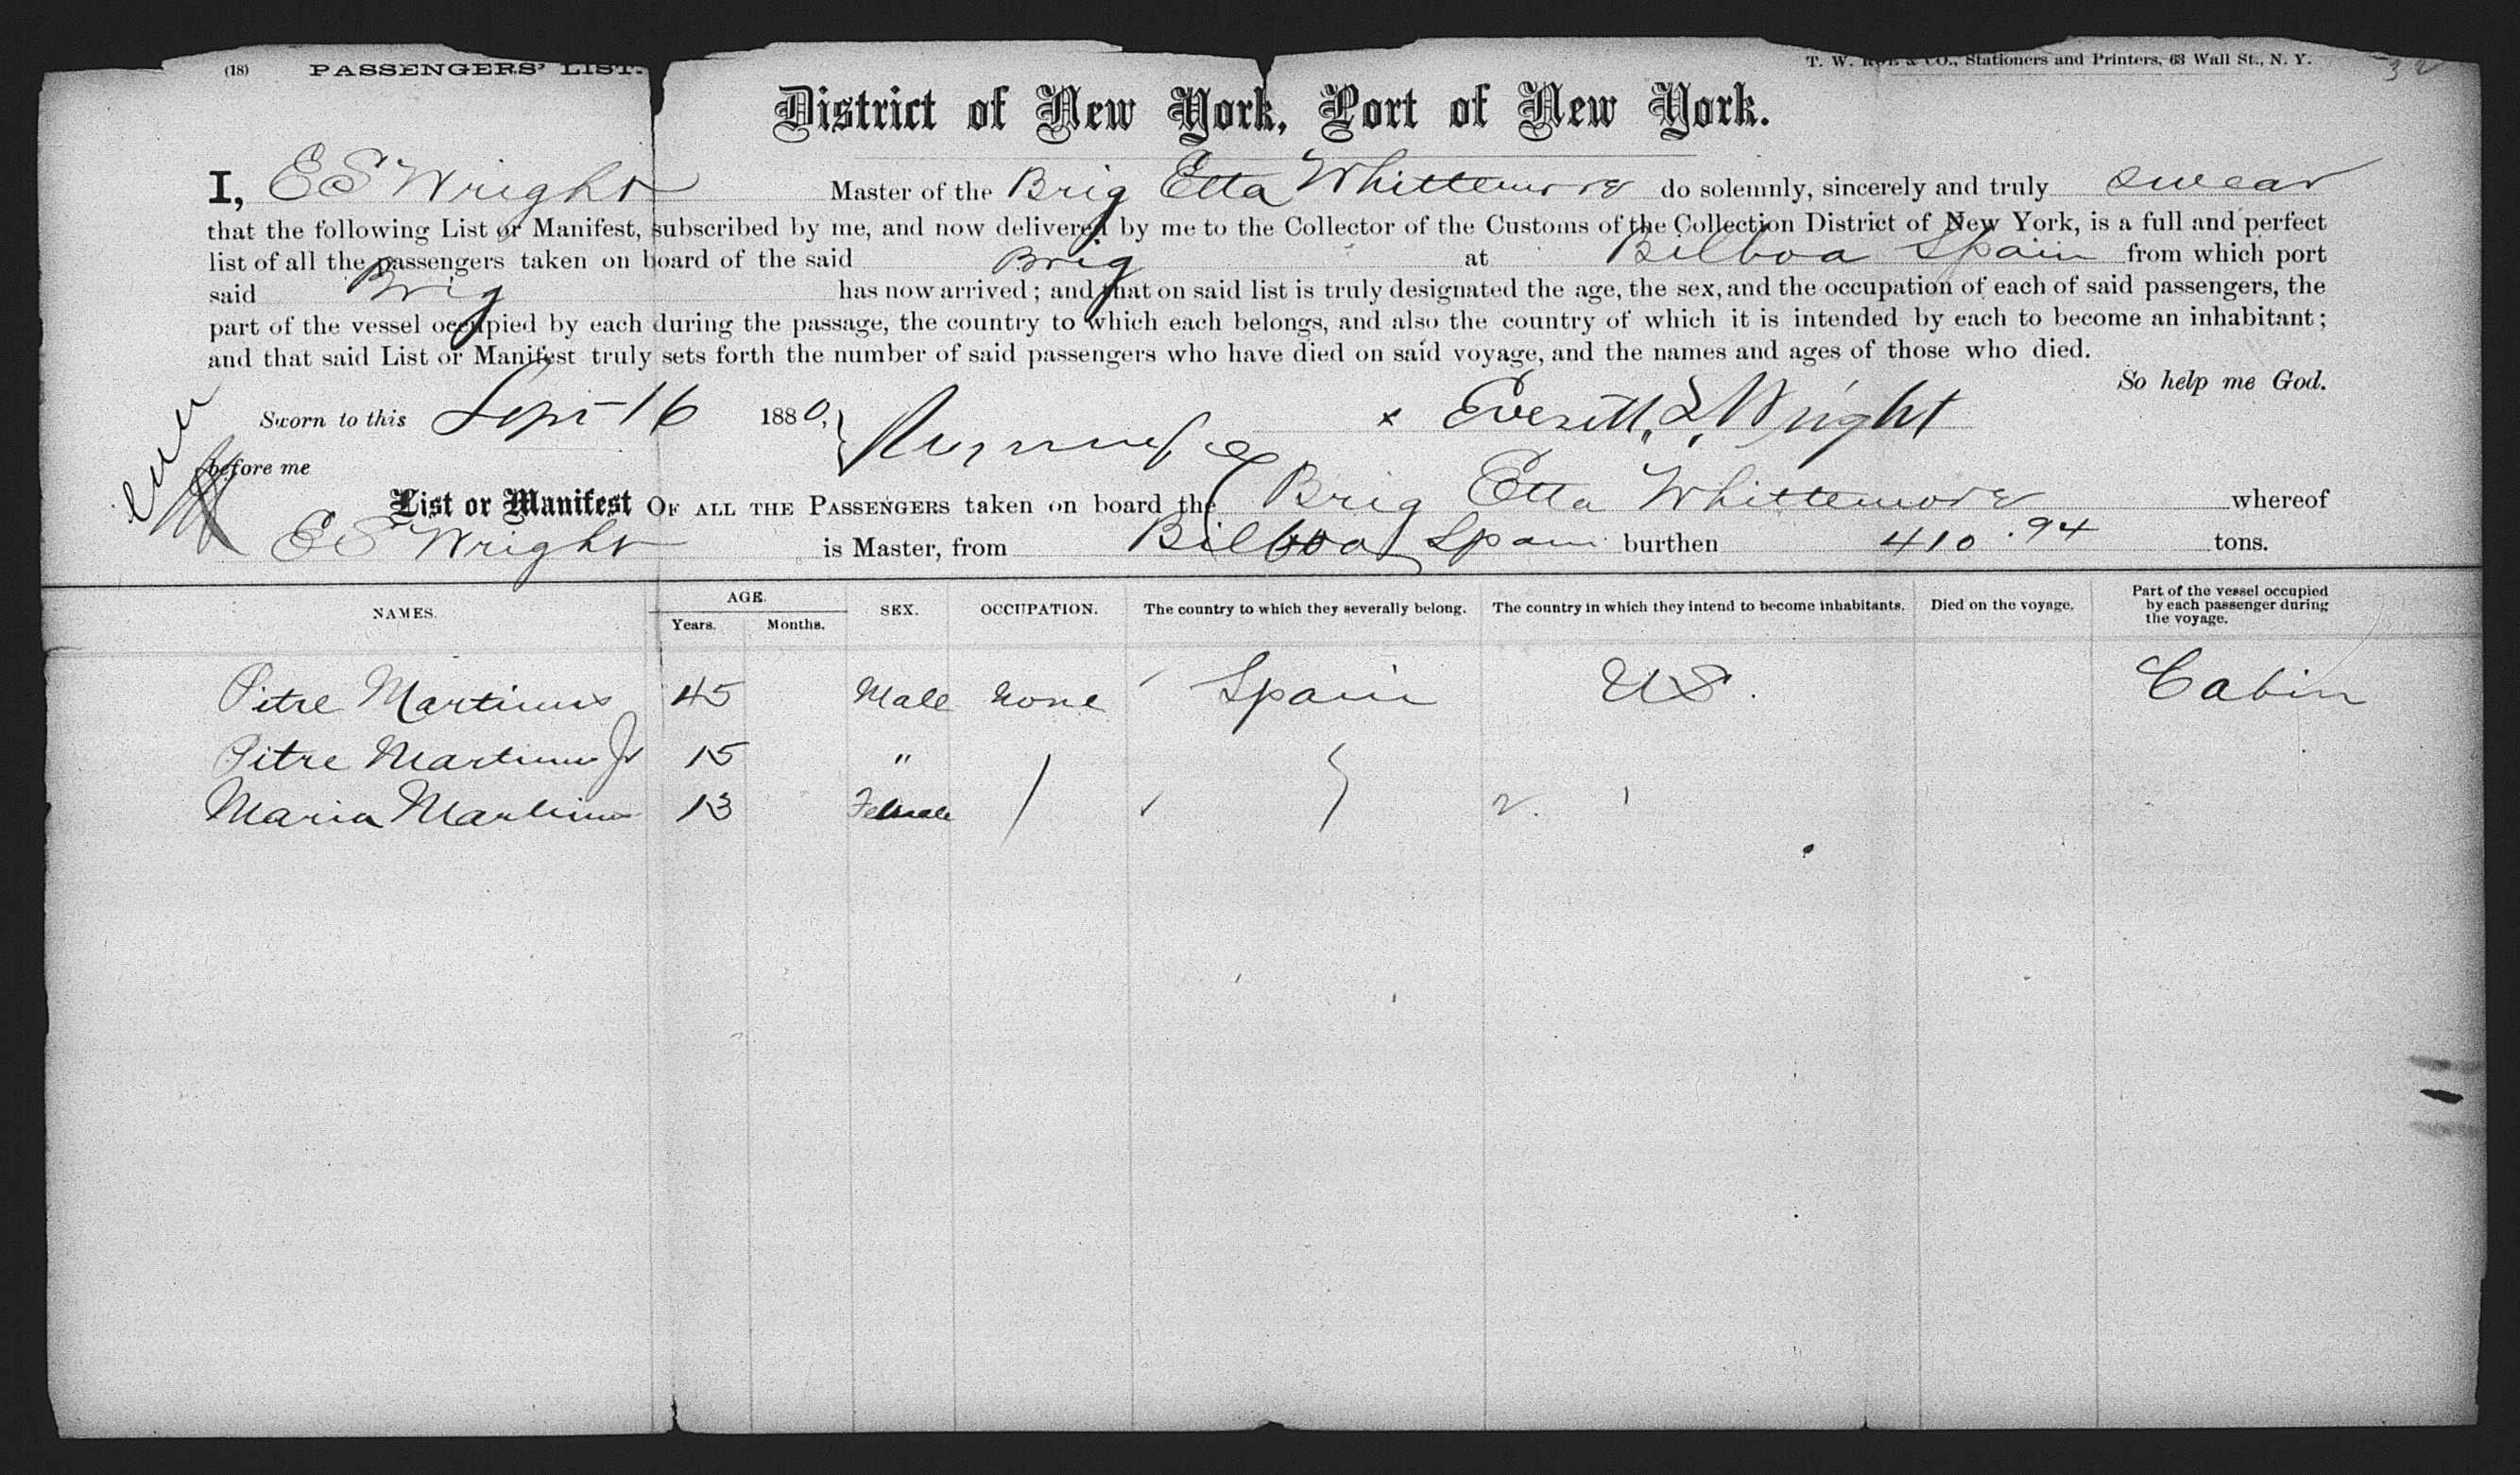 (18) PASSENGERS' LIST. T. W. ROE & CO., Stationers and Printers, 63 Wall St., N. Y. 32
District of New York, Port of New York.
I, E S Wright Master of the Brig Etta Whittemore do solemnly, sincerely and truly swear
that the following List or Manifest, subscribed by me, and now delivered by me to the Collector of the Customs of the Collection District of New York, is a full and perfect
list of all the passengers taken on board of the said Brig at Bilboa Spain from which port
said Brig has now arrived; and that on said list is truly designated the age, the sex, and the occupation of each of said passengers, the
part of the vessel occupied by each during the passage, the country to which each belongs, and also the country of which it is intended by each to become an inhabitant;
and that said List or Manifest truly sets forth the number of said passengers who have died on said voyage, and the names and ages of those who died.
So help me God.
Sworn to this Sept 16 1880, x Everitt S. Wright
before me
List or Manifest OF ALL THE PASSENGERS taken on board the Brig Etta Whittemore whereof
E S Wright is Master, from Bilboa Spain burthen 410.94 tons.
NAMES. AGE. Years. Months. SEX. OCCUPATION. The country to which they severally belong. The country in which they intend to become inhabitants. Died on the voyage. Part of the vessel occupied by each passenger during the voyage.
Pitre Martinus 45 Male None Spain US. Cabin
Pitre Martinus Jr 15 "
Maria Martinus 13 Female